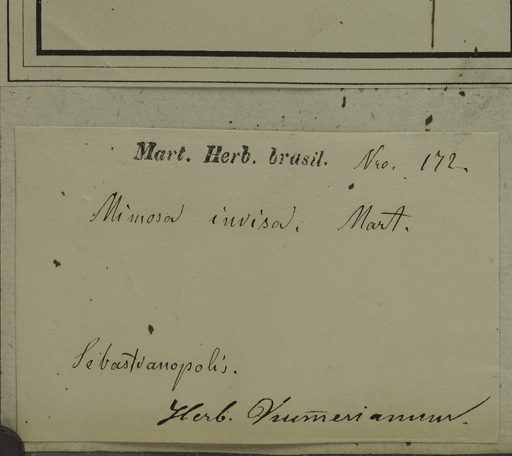 Mart. Herb. brasil. Nro. 172.
Mimosa invisa. Mart.
Sebastianopolis.
Herb.